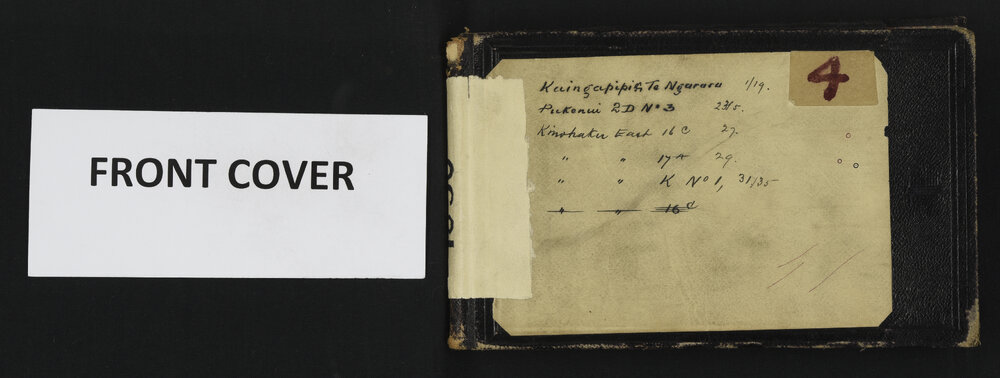 FRONT COVER
4
Kaingapipi, Te Ngarara 1/19.
Pukenui 2D No 3 23/5.
Kinohaku East 16 C 27.
" " 17 A 29.
" " K No 1, 31/35
" " 16 C